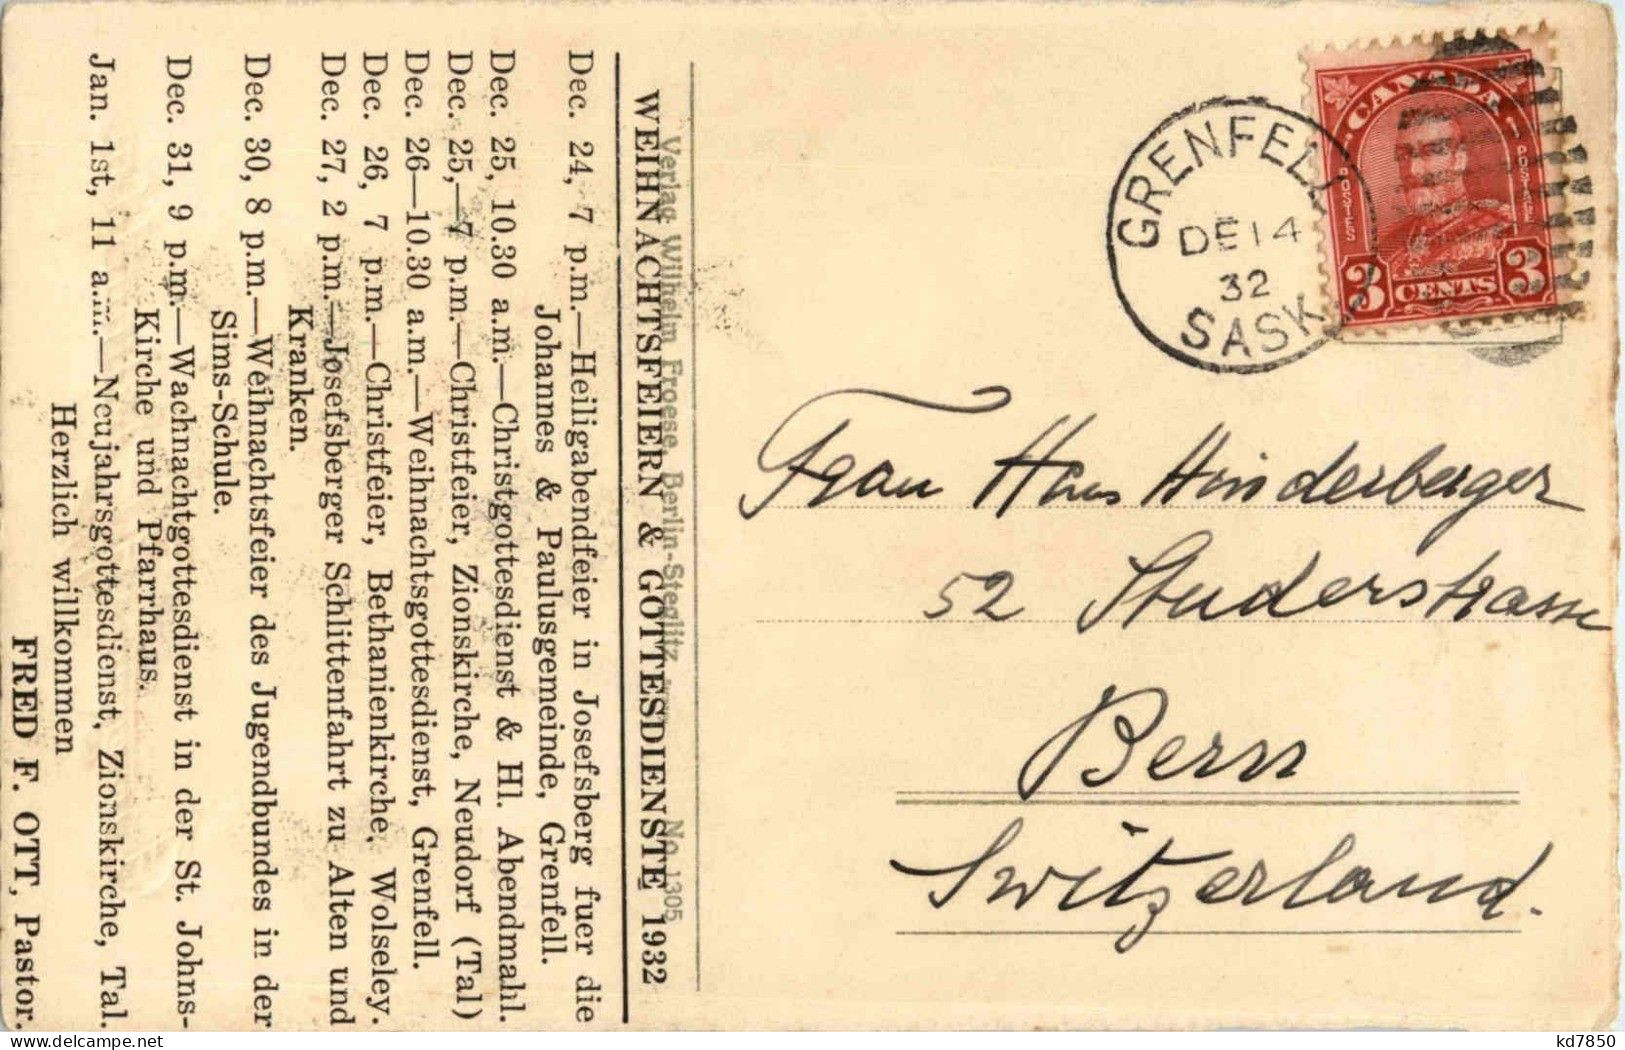 WEIHNACHTSFEIERN & GOTTESDIENSTE 1932
Dec. 24, 7 p.m.—Heiligabendfeier in Josefsberg fuer die
Johannes & Paulusgemeinde, Grenfell.
Dec. 25, 10.30 a.m.—Christgottesdienst & Hl. Abendmahl.
Dec. 25,—7 p.m.—Christfeier, Zionskirche, Neudorf (Tal)
Dec. 26—10.30 a.m.—Weihnachtsgottesdienst, Grenfell.
Dec. 26, 7 p.m.—Christfeier, Bethanienkirche, Wolseley.
Dec. 27, 2 p.m.—Josefsberger Schlittenfahrt zu Alten und
Kranken.
Dec. 30, 8 p.m.—Weihnachtsfeier des Jugendbundes in der
Sims-Schule.
Dec. 31, 9 p.m.—Wachnachtgottesdienst in der St. Johns-
Kirche und Pfarrhaus.
Jan. 1st, 11 a.m.—Neujahrsgottesdienst, Zionskirche, Tal.
Herzlich willkommen
FRED F. OTT, Pastor.
Verlag Wilhelm Froese, Berlin-Steglitz No. 1305
GRENFELL
DE 14
32
SASK.
CANADA
POSTES POSTAGE
3 CENTS 3
Frau Hans Hinderberger
52 Studerstrasse
Bern
Switzerland.
kd7850